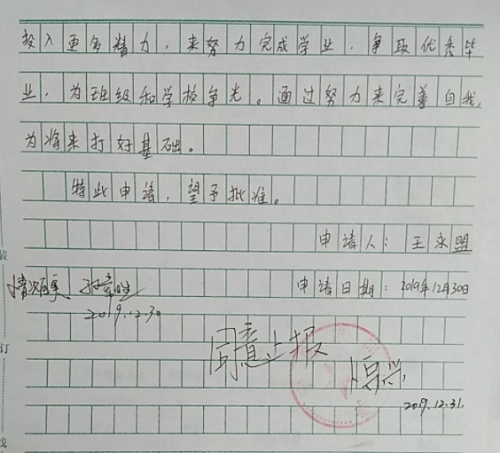 投入更多精力，来努力完成学业，争取优秀毕
业，为班级和学校争光。通过努力来完善自我，
为将来打好基础。
特此申请，望予批准。
申请人：王永盟
申请日期：2019年12月30日
情况属实
2019.12.30
同意上报
2019.12.31
装
订
线